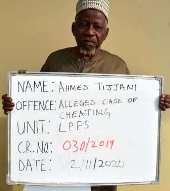 NAME: AHMES TIJJANI
OFFENCE: ALLEGED CASE OF
CHEATING
UNIT: LPFS
CR.NO: 030/2019
DATE: 2/11/2020